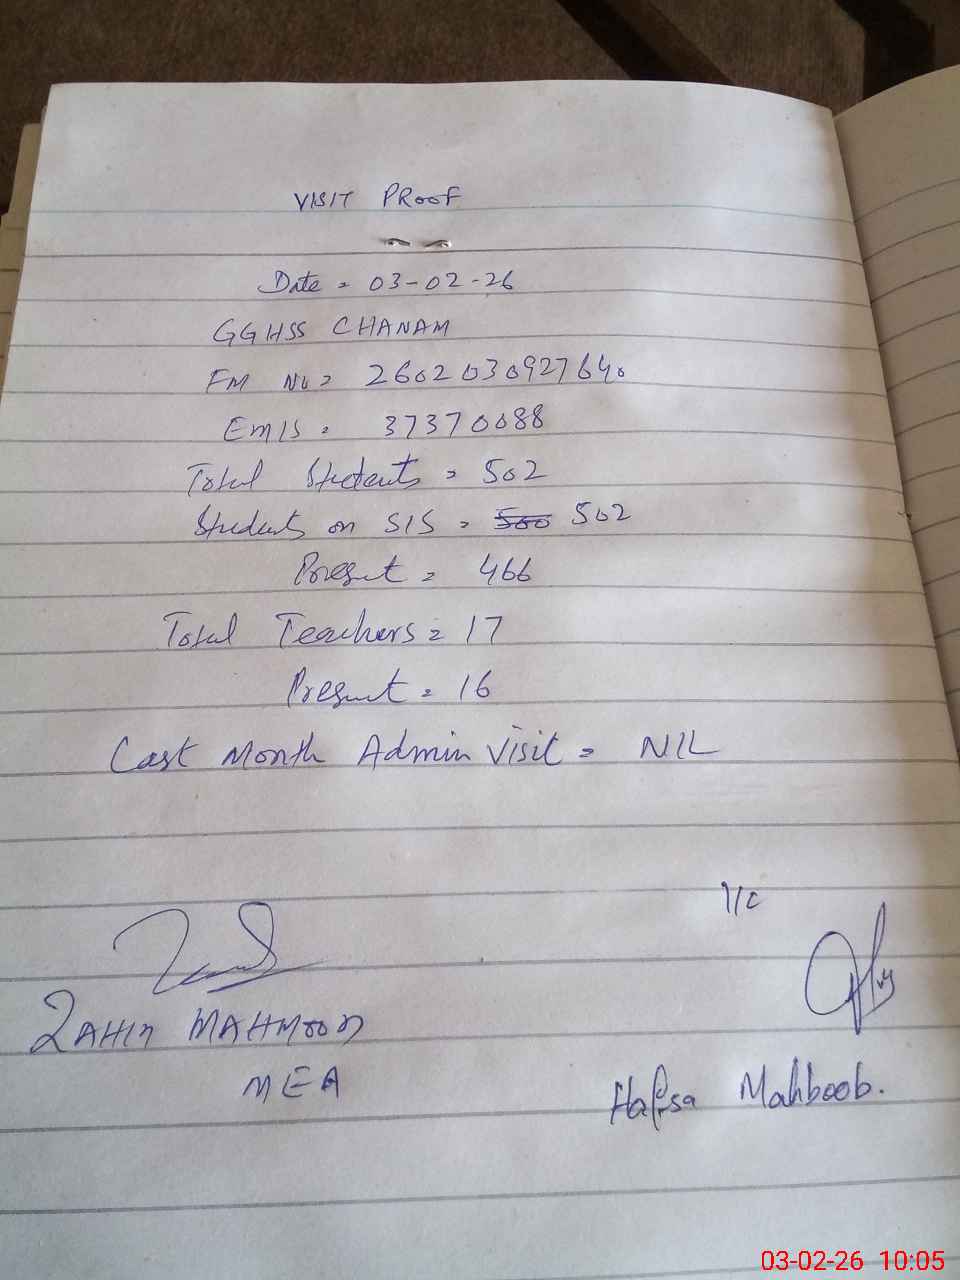 VISIT PROOF
Date = 03-02-26
GGHSS CHANAM
FM No = 2602030927640
EMIS = 37370088
Total Students = 502
Students on SIS = 500 502
Present = 466
Total Teachers = 17
Present = 16
Last Month Admin Visit = NIL
I/C
ZAHID MAHMOOD
MEA
Hafsa Mahboob.
03-02-26 10:05